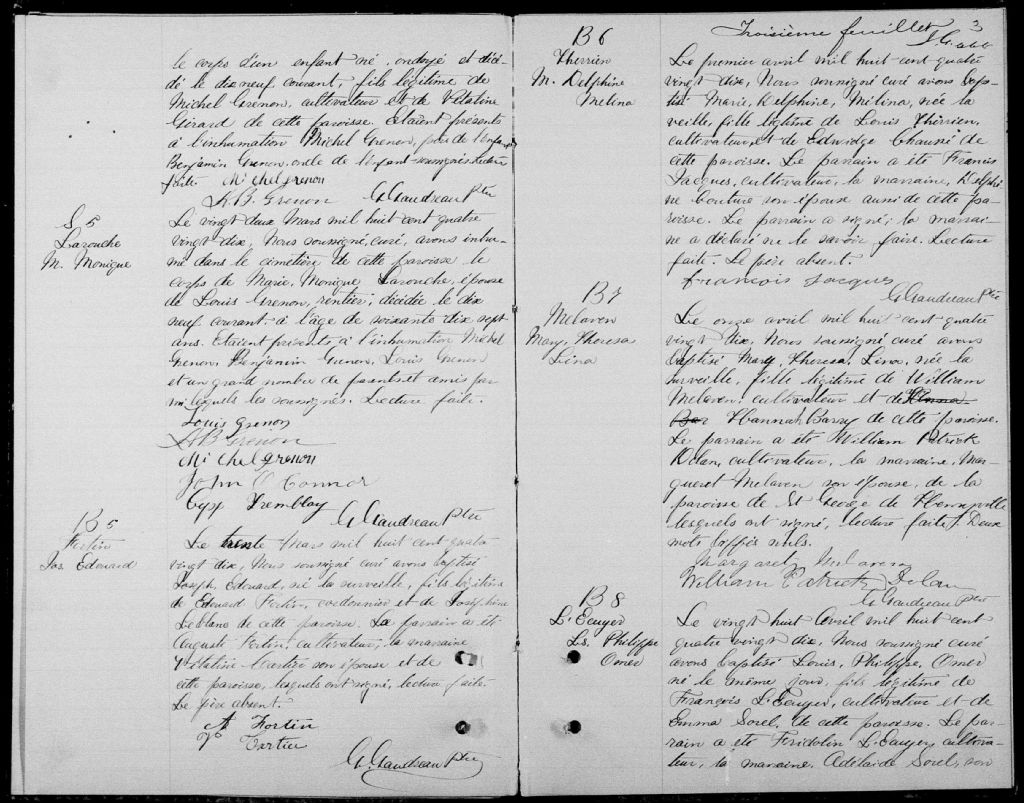 le corps d'un enfant né, ondoyé et déci-
dé le dix neuf courant, fils légitime de
Michel Grenon, cultivateur et de Vitaline
Girard de cette paroisse. Etaient présents
à l'inhumation Michel Grenon, père de l'enfant
Benjamin Grenon, oncle de l'enfant soussignés lecture
faite. Michel Grenon
A. B. Grenon G. Gaudreau Ptre
S 5
Larouche
M. Monique
Le vingt deux Mars mil huit cent quatre
vingt dix, Nous soussigné, curé, avons inhu-
mé dans le cimetière de cette paroisse le
corps de Marie, Monique Larouche, épouse
de Louis Grenon, rentier, décédée le dix
neuf courant, à l'âge de soixante dix sept
ans. Etaient présents à l'inhumation Michel
Grenon, Benjamin Grenon, Louis Grenon
et un grand nombre de parents et amis par
mi lesquels les soussignés. Lecture faite.
Louis Grenon
A B Grenon
Michel Grenon
John O'Connor
Cyp Tremblay
G Gaudreau Ptre
B 5
Fortin
Jos. Edouard
Le trente Mars mil huit cent quatre
vingt dix, Nous soussigné curé avons baptisé
Joseph, Edouard, né la surveille, fils légitime
de Edouard Fortin, cordonnier et de Joséphine
Leblanc de cette paroisse. Le parrain a été
Auguste Fortin, cultivateur, la marraine
Vitaline Cartier son épouse et de
cette paroisse, lesquels ont signé, lecture faite.
Le père absent.
A Fortin
V Cartier
G. Gaudreau Ptre
Troisième feuillet 3
B 6
Therrien
M. Delphine
Mélina
Le premier avril mil huit cent quatre
vingt dix, Nous soussigné curé avons bap-
tisé Marie, Delphine, Mélina, née la
veille, fille légitime de Louis Therrien,
cultivateur et de Edwidge Chaussé de
cette paroisse. Le parrain a été Francis
Jacques, cultivateur, la marraine, Delphi
ne Couture son épouse aussi de cette pa-
roisse. Le parrain a signé; la marrai-
ne a déclaré ne le savoir faire. Lecture
faite. Le père absent.
francois Jacques
G Gaudreau Ptre
B 7
Mclaren
Mary, Theresa
Lina
Le onze avril mil huit cent quatre
vingt dix. Nous soussigné curé avons
baptisé Mary, Theresa, Lina, née la
surveille, fille légitime de William
Mclaren, cultivateur et de Hanna
Bar Hannah Barry de cette paroisse.
Le parrain a été William Patrick
Dolan, cultivateur, la marraine, Mar-
gueret Mclaren son épouse, de la
paroisse de St George de Henryville
lesquels ont signé, lecture faite. Deux
mots biffés nuls.
Margaret Mclaren
William Patrick Dolan
G Gaudreau Ptre
B 8
L'Ecuyer
Ls. Philippe
Omer
Le vingt huit Avril mil huit cent
quatre vingt dix. Nous soussigné curé
avons baptisé Louis, Philippe, Omer
né le même jour, fils légitime de
François L'Ecuyer, cultivateur et de
Emma Sorel, de cette paroisse. Le par-
rain a été Fridolin L'Ecuyer cultiva-
teur, la marraine, Adelaïde Sorel, son